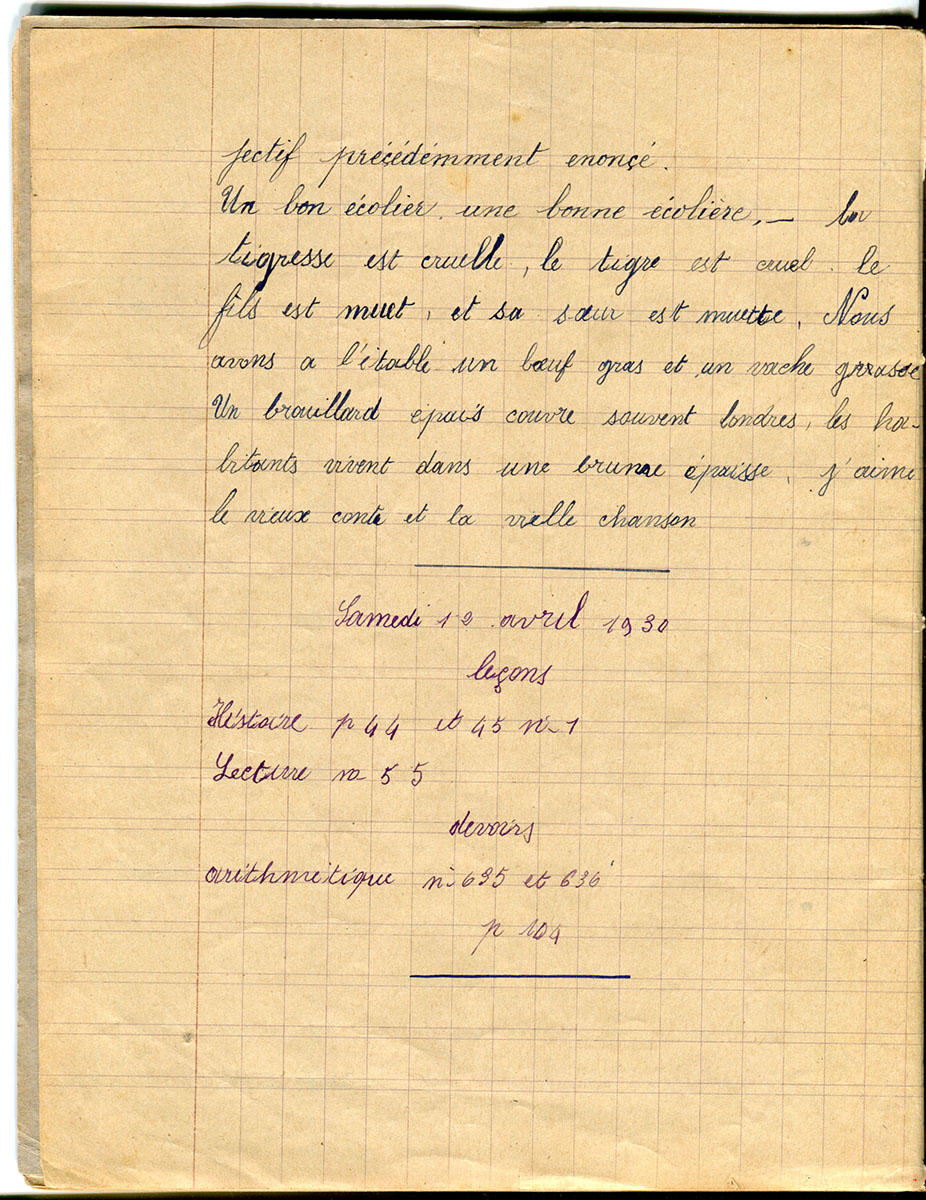 jectif précédemment enonçé.
Un bon écolier, une bonne écolière, _ la
tigresse est cruelle, le tigre est cruel. le
fils est muet, et sa sœur est muette. Nous
avons a l'étable un bœuf gras et un vache grasse
Un brouillard épais couvre souvent londres, les ha-
bitants vivent dans une brume épaisse. j'aime
le vieux conte et la vielle chanson
Samedi 12 avril 1930
leçons
Histoire p 44 et 45 n-1
Lecture no 55
devoirs
arithmetique n: 635 et 636
p 104